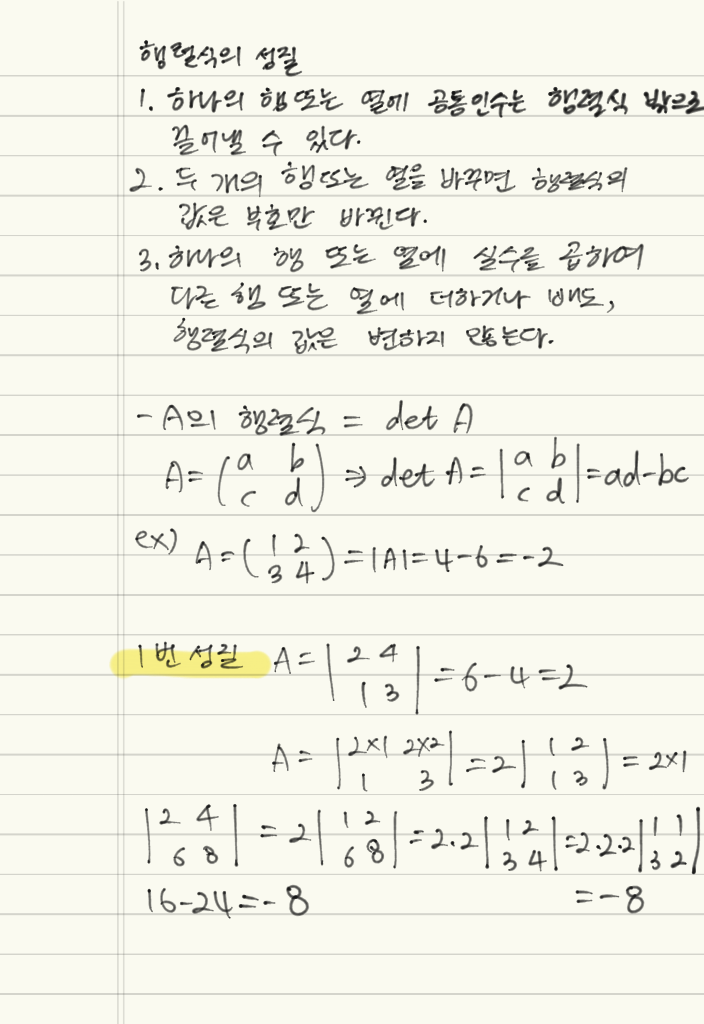 행렬식의 성질
1. 하나의 행 또는 열에 공통인수는 행렬식 밖으로
끌어낼 수 있다.
2. 두 개의 행 또는 열을 바꾸면 행렬식의
값은 부호만 바뀐다.
3. 하나의 행 또는 열에 실수를 곱하여
다른 행 또는 열에 더하거나 빼도,
행렬식의 값은 변하지 않는다.
- A의 행렬식 = det A
A = (a b / c d) ⇒ det A = |a b / c d| = ad-bc
ex) A = (1 2 / 3 4) = |A| = 4-6 = -2
1번 성질 A = |2 4 / 1 3| = 6-4 = 2
A = |2×1 2×2 / 1 3| = 2|1 2 / 1 3| = 2×1
|2 4 / 6 8| = 2|1 2 / 6 8| = 2.2|1 2 / 3 4| = 2.2.2|1 1 / 3 2|
16-24 = -8 = -8